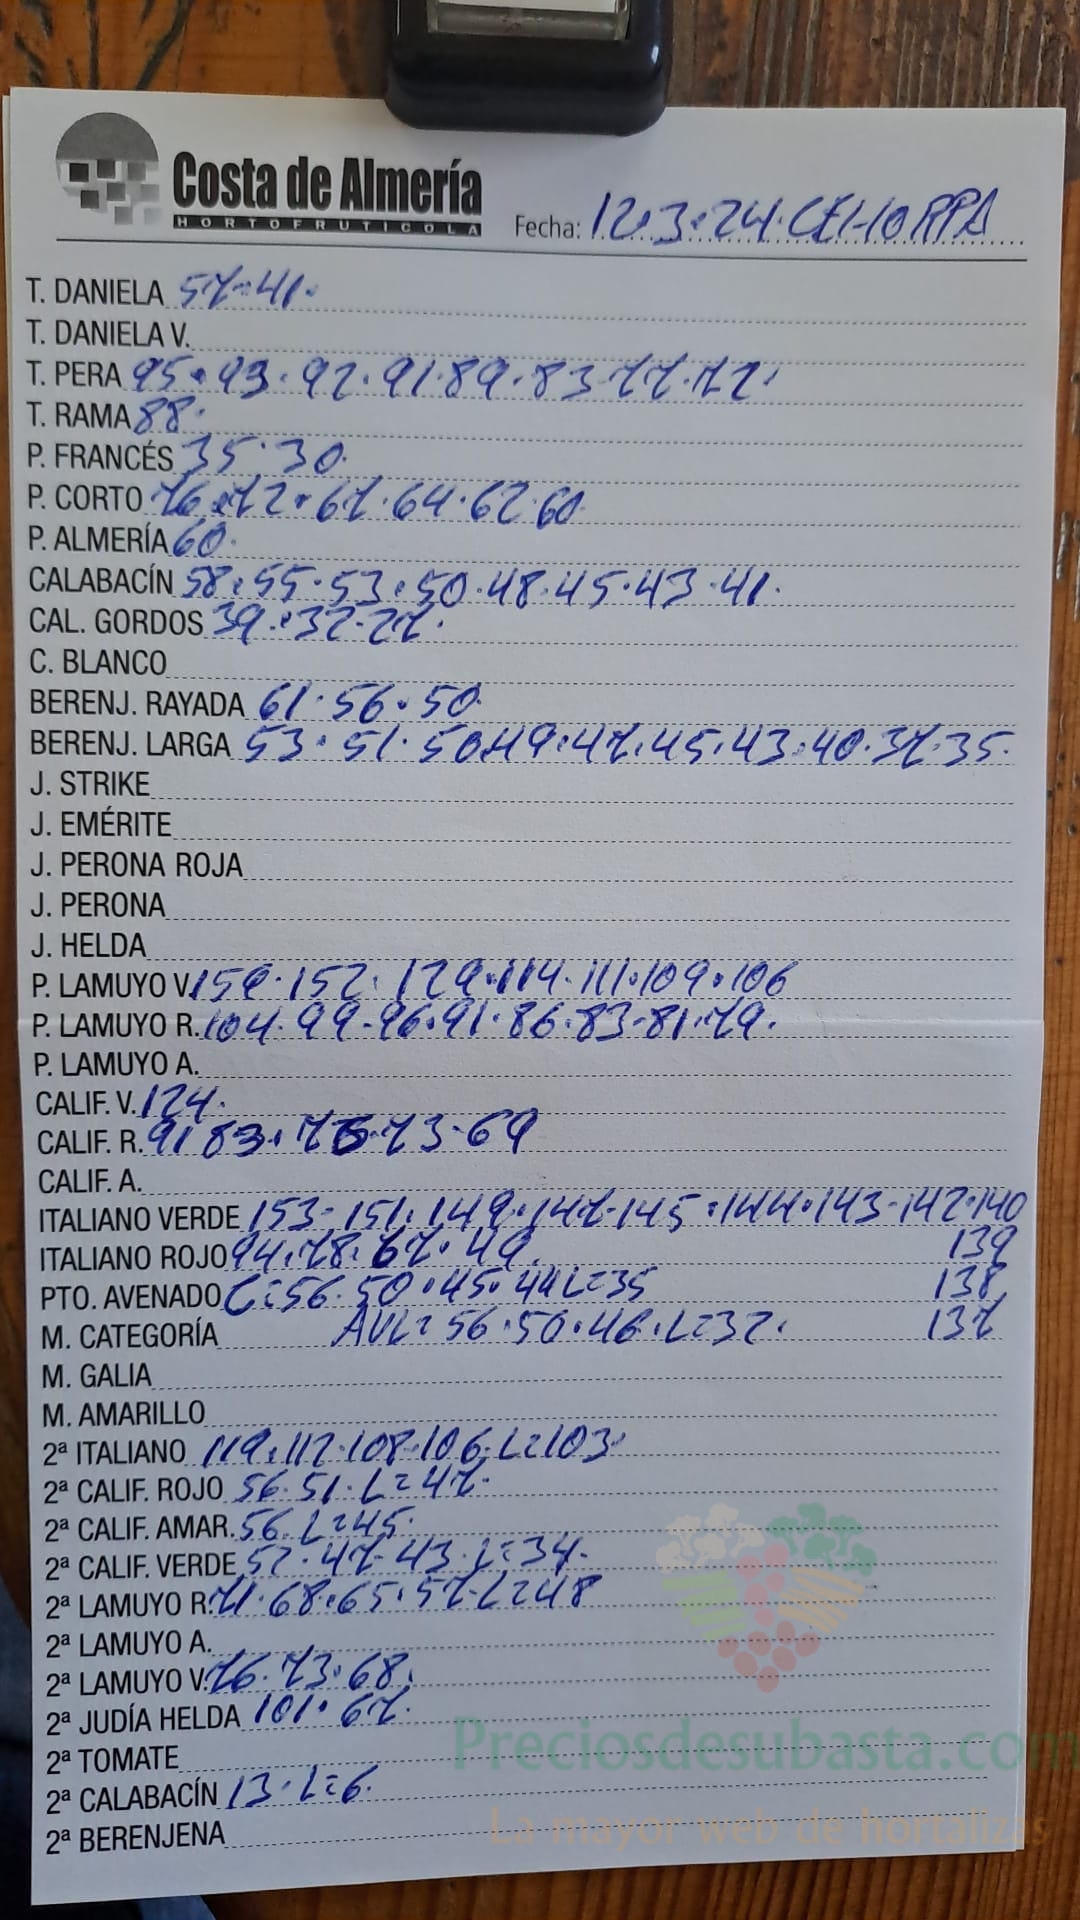 Costa de Almería
HORTOFRUTICOLA
Fecha: 12.3.24. CEHORPA
T. DANIELA 57-41.
T. DANIELA V.
T. PERA 95.93.92.91.89.83.77.72.
T. RAMA 88.
P. FRANCÉS 35.30.
P. CORTO 76.72.67.64.62.60
P. ALMERÍA 60.
CALABACÍN 58.55.53.50.48.45.43.41.
CAL. GORDOS 39.32-27.
C. BLANCO
BERENJ. RAYADA 61.56.50.
BERENJ. LARGA 53.51.50.49.47.45.43.40.37.35.
J. STRIKE
J. EMÉRITE
J. PERONA ROJA
J. PERONA
J. HELDA
P. LAMUYO V. 152. 129.114.111.109.106
P. LAMUYO R. 104.99-96.91.86.83-81.79.
P. LAMUYO A.
CALIF. V. 124.
CALIF. R. 91 83. 73-69
CALIF. A.
ITALIANO VERDE 153-151.149.147-145.144.143-142.140
ITALIANO ROJO 94.78.67.49. 139
PTO. AVENADO C=56.50.45.44 L=35 138
M. CATEGORÍA AVL=56.50.46.L=32. 137
M. GALIA
M. AMARILLO
2ª ITALIANO 119.112.108-106.L=103
2ª CALIF. ROJO 56.51.L=47.
2ª CALIF. AMAR. 56.L=45.
2ª CALIF. VERDE 52.47-43.L=34.
2ª LAMUYO R. 71.68.65.57-L=48
2ª LAMUYO A.
2ª LAMUYO V. 76.73.68.
2ª JUDÍA HELDA 101.67.
2ª TOMATE
2ª CALABACÍN 13.L=6.
2ª BERENJENA
Preciosdesubasta.com
La mayor web de hortalizas